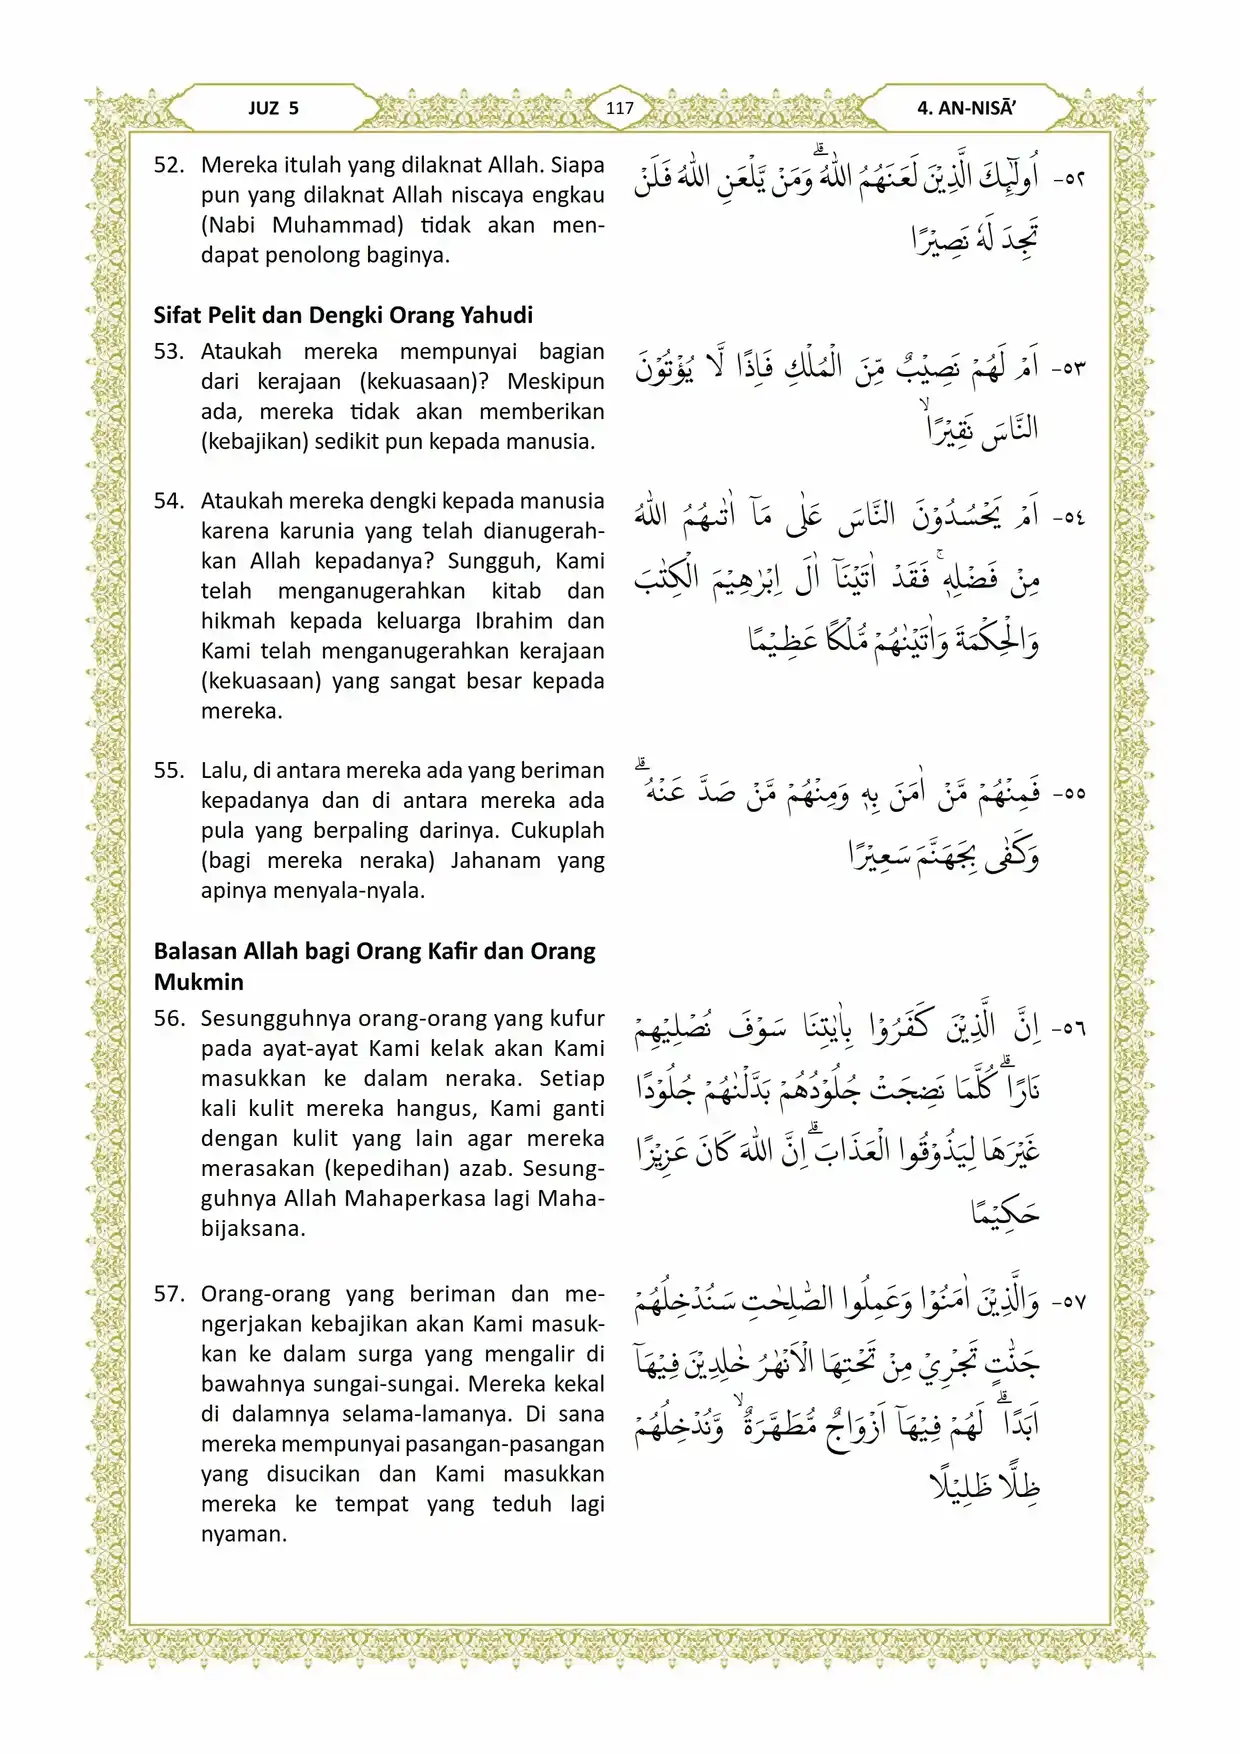 JUZ 5
117
4. AN-NISĀ’
52. Mereka itulah yang dilaknat Allah. Siapa
pun yang dilaknat Allah niscaya engkau
(Nabi Muhammad) tidak akan men-
dapat penolong baginya.
٥٢- اُولٰۤىِٕكَ الَّذِيْنَ لَعَنَهُمُ اللّٰهُ ۗوَمَنْ يَّلْعَنِ اللّٰهُ فَلَنْ
تَجِدَ لَهٗ نَصِيْرًا
Sifat Pelit dan Dengki Orang Yahudi
53. Ataukah mereka mempunyai bagian
dari kerajaan (kekuasaan)? Meskipun
ada, mereka tidak akan memberikan
(kebajikan) sedikit pun kepada manusia.
٥٣- اَمْ لَهُمْ نَصِيْبٌ مِّنَ الْمُلْكِ فَاِذًا لَّا يُؤْتُوْنَ
النَّاسَ نَقِيْرًاۙ
54. Ataukah mereka dengki kepada manusia
karena karunia yang telah dianugerah-
kan Allah kepadanya? Sungguh, Kami
telah menganugerahkan kitab dan
hikmah kepada keluarga Ibrahim dan
Kami telah menganugerahkan kerajaan
(kekuasaan) yang sangat besar kepada
mereka.
٥٤- اَمْ يَحْسُدُوْنَ النَّاسَ عَلٰى مَآ اٰتٰىهُمُ اللّٰهُ
مِنْ فَضْلِهٖۚ فَقَدْ اٰتَيْنَآ اٰلَ اِبْرٰهِيْمَ الْكِتٰبَ
وَالْحِكْمَةَ وَاٰتَيْنٰهُمْ مُّلْكًا عَظِيْمًا
55. Lalu, di antara mereka ada yang beriman
kepadanya dan di antara mereka ada
pula yang berpaling darinya. Cukuplah
(bagi mereka neraka) Jahanam yang
apinya menyala-nyala.
٥٥- فَمِنْهُمْ مَّنْ اٰمَنَ بِهٖ وَمِنْهُمْ مَّنْ صَدَّ عَنْهُ ۗ
وَكَفٰى بِجَهَنَّمَ سَعِيْرًا
Balasan Allah bagi Orang Kafir dan Orang
Mukmin
56. Sesungguhnya orang-orang yang kufur
pada ayat-ayat Kami kelak akan Kami
masukkan ke dalam neraka. Setiap
kali kulit mereka hangus, Kami ganti
dengan kulit yang lain agar mereka
merasakan (kepedihan) azab. Sesung-
guhnya Allah Mahaperkasa lagi Maha-
bijaksana.
٥٦- اِنَّ الَّذِيْنَ كَفَرُوْا بِاٰيٰتِنَا سَوْفَ نُصْلِيْهِمْ
نَارًاۗ كُلَّمَا نَضِجَتْ جُلُوْدُهُمْ بَدَّلْنٰهُمْ جُلُوْدًا
غَيْرَهَا لِيَذُوْقُوا الْعَذَابَۗ اِنَّ اللّٰهَ كَانَ عَزِيْزًا
حَكِيْمًا
57. Orang-orang yang beriman dan me-
ngerjakan kebajikan akan Kami masuk-
kan ke dalam surga yang mengalir di
bawahnya sungai-sungai. Mereka kekal
di dalamnya selama-lamanya. Di sana
mereka mempunyai pasangan-pasangan
yang disucikan dan Kami masukkan
mereka ke tempat yang teduh lagi
nyaman.
٥٧- وَالَّذِيْنَ اٰمَنُوْا وَعَمِلُوا الصّٰلِحٰتِ سَنُدْخِلُهُمْ
جَنّٰتٍ تَجْرِيْ مِنْ تَحْتِهَا الْاَنْهٰرُ خٰلِدِيْنَ فِيْهَآ
اَبَدًاۗ لَهُمْ فِيْهَآ اَزْوَاجٌ مُّطَهَّرَةٌ ۙ وَّنُدْخِلُهُمْ
ظِلًّا ظَلِيْلًا